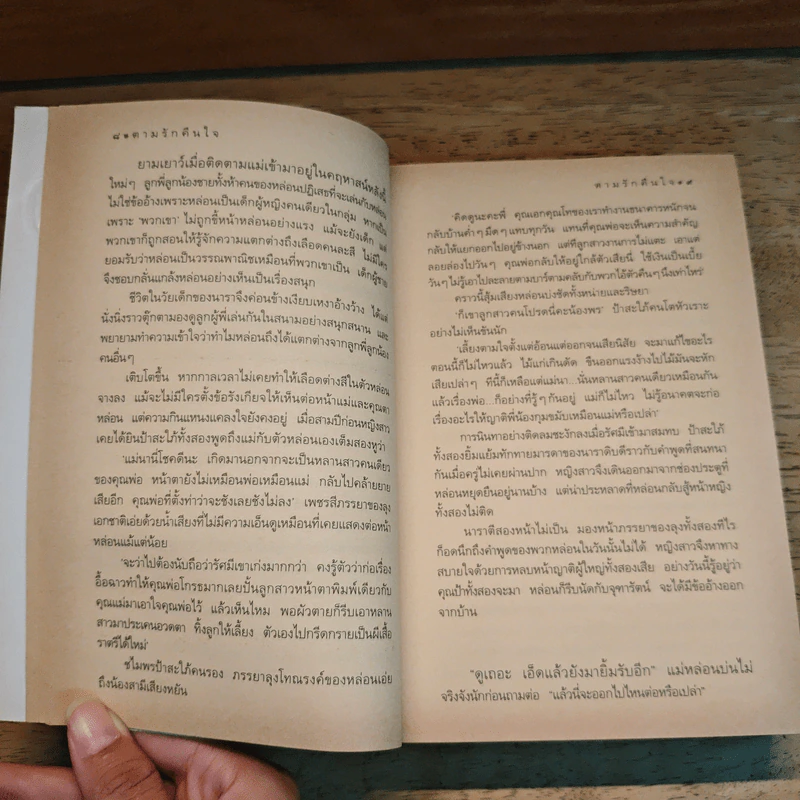 ๘ ๑ ตามรักคืนใจ
ยามเยาว์เมื่อติดตามแม่เข้ามาอยู่ในคฤหาสน์หลังนี้
ใหม่ๆ ลูกพี่ลูกน้องชายทั้งห้าคนของหล่อนปฏิเสธที่จะเล่นกับหล่อน
ไม่ใช่ข้ออ้างเพราะหล่อนเป็นเด็กผู้หญิงคนเดียวในกลุ่ม หากเป็น
เพราะ ‘พวกเขา’ ไม่ถูกชี้หน้าหล่อนอย่างแรง แม้จะยังเด็ก แต่
พวกเขาก็ถูกสอนให้รู้จักความแตกต่างถึงเลือดคนละสี ไม่มีใคร
ยอมรับว่าหล่อนเป็นวรรณพาณิชเหมือนที่พวกเขาเป็น เด็กผู้ชาย
จึงชอบกลั่นแกล้งหล่อนอย่างเห็นเป็นเรื่องสนุก
ชีวิตในวัยเด็กของนาราจึงค่อนข้างเงียบเหงาอ้างว้าง ได้แต่
นั่งนิ่งราวตุ๊กตามองดูลูกผู้พี่เล่นกันในสนามอย่างสนุกสนาน และ
พยายามทำความเข้าใจว่าทำไมหล่อนถึงได้แตกต่างจากลูกพี่ลูกน้อง
คนอื่นๆ
เติบโตขึ้น หากกาลเวลาไม่เคยทำให้เลือดต่างสีในตัวหล่อน
จางลง แม้จะไม่มีใครตั้งข้อรังเกียจให้เห็นต่อหน้าแม่และคุณตา
หล่อน แต่ความกินแหนงแคลงใจยังคงอยู่ เมื่อสามปีก่อนหญิงสาว
เคยได้ยินป้าสะใภ้ทั้งสองพูดถึงแม่กับตัวหล่อนเองเต็มสองหูว่า
‘แม่นานี่โชคดีนะ เกิดมานอกจากจะเป็นหลานสาวคนเดียว
ของคุณพ่อ หน้าตายังไม่เหมือนพ่อเหมือนแม่ กลับไปคล้ายยาย
เสียอีก คุณพ่อที่ตั้งท่าว่าจะชังเลยชังไม่ลง’ เพชรสีภรรยาของลุง
เอกชาติเอ่ยด้วยน้ำเสียงที่ไม่มีความเอ็นดูเหมือนที่เคยแสดงต่อหน้า
หล่อนแม้แต่น้อย
‘จะว่าไปต้องนับถือว่ารัศมีเขาเก่งมากกว่า คงรู้ตัวว่าก่อเรื่อง
อื้อฉาวทำให้คุณพ่อโกรธมากเลยปั้นลูกสาวหน้าตาพิมพ์เดียวกับ
คุณแม่มาเอาใจคุณพ่อไว้ แล้วเห็นไหม พอผัวตายก็รีบเอาหลาน
สาวมาประเคนอวดตา ทิ้งลูกให้เลี้ยง ตัวเองไปกรีดกรายเป็นผีเสื้อ
ราตรีได้ใหม่’
ชไมพรป้าสะใภ้คนรอง ภรรยาลุงโทณรงค์ของหล่อนเอ่ย
ถึงน้องสามีเสียงหยัน
ตามรักคืนใจ
‘คิดดูนะคะพี่ คุณเอกคุณโทของเราทำงานธนาคารหนักจน
กลับบ้านค่ำๆ มืดๆ แทบทุกวัน แทนที่คุณพ่อจะเห็นความสำคัญ
กลับให้แยกออกไปอยู่ข้างนอก แต่ทีลูกสาวงานการไม่แตะ เอาแต่
ลอยล่องไปวันๆ คุณพ่อกลับให้อยู่ใกล้ตัวเสียนี่ ใช้เงินเป็นเบี้ย
วันๆ ไม่รู้เอาไปละลายตามบาร์ตามคลับกับพวกไอ้ตัวคืนๆ นึงเท่าไหร่’
คราวนี้สุ้มเสียงหล่อนบ่งชัดทั้งหน่ายและริษยา
‘ก็เขาลูกสาวคนโปรดนี่คะน้องพร’ ป้าสะใภ้คนโตหัวเราะ
อย่างไม่เห็นขันนัก
‘เลี้ยงตามใจตั้งแต่อ้อนแต่ออกจนเสียนิสัย จะมาแก้ไขอะไร
ตอนนี้ก็ไม่ไหวแล้ว ไม้แก่เกินดัด ขืนออกแรงง้างไปไม้มันจะหัก
เสียเปล่าๆ ทีนี้ก็เหลือแต่แม่นา...นั่นหลานสาวคนเดียวเหมือนกัน
แล้วเรื่องพ่อ...ก็อย่างที่รู้ๆ กันอยู่ แม่ก็ไม่ไหว ไม่รู้อนาคตจะก่อ
เรื่องอะไรให้ญาติพี่น้องกุมขมับเหมือนแม่หรือเปล่า’
การนินทาอย่างติดลมชะงักลงเมื่อรัศมีเข้ามาสมทบ ป้าสะใภ้
ทั้งสองยิ้มแย้มทักทายมารดาของนาราดิบดีราวกับคำพูดที่สนทนา
กันเมื่อครู่ไม่เคยผ่านปาก หญิงสาวจึงเดินออกมาจากช่องประตูที่
หล่อนหยุดยืนอยู่นานบ้าง แต่น่าประหลาดที่หล่อนกลับสู้หน้าหญิง
ทั้งสองไม่ติด
นาราตีสองหน้าไม่เป็น มองหน้าภรรยาของลุงทั้งสองทีไร
ก็อดนึกถึงคำพูดของพวกหล่อนในวันนั้นไม่ได้ หญิงสาวจึงหาทาง
สบายใจด้วยการหลบหน้าญาติผู้ใหญ่ทั้งสองเสีย อย่างวันนี้รู้อยู่ว่า
คุณป้าทั้งสองจะมา หล่อนก็รีบนัดกับจุฑารัตน์ จะได้มีข้ออ้างออก
จากบ้าน
“ดูเถอะ เอ็ดแล้วยังมายิ้มรับอีก” แม่หล่อนบ่นไม่
จริงจังนักก่อนถามต่อ “แล้วนี่จะออกไปไหนต่อหรือเปล่า”